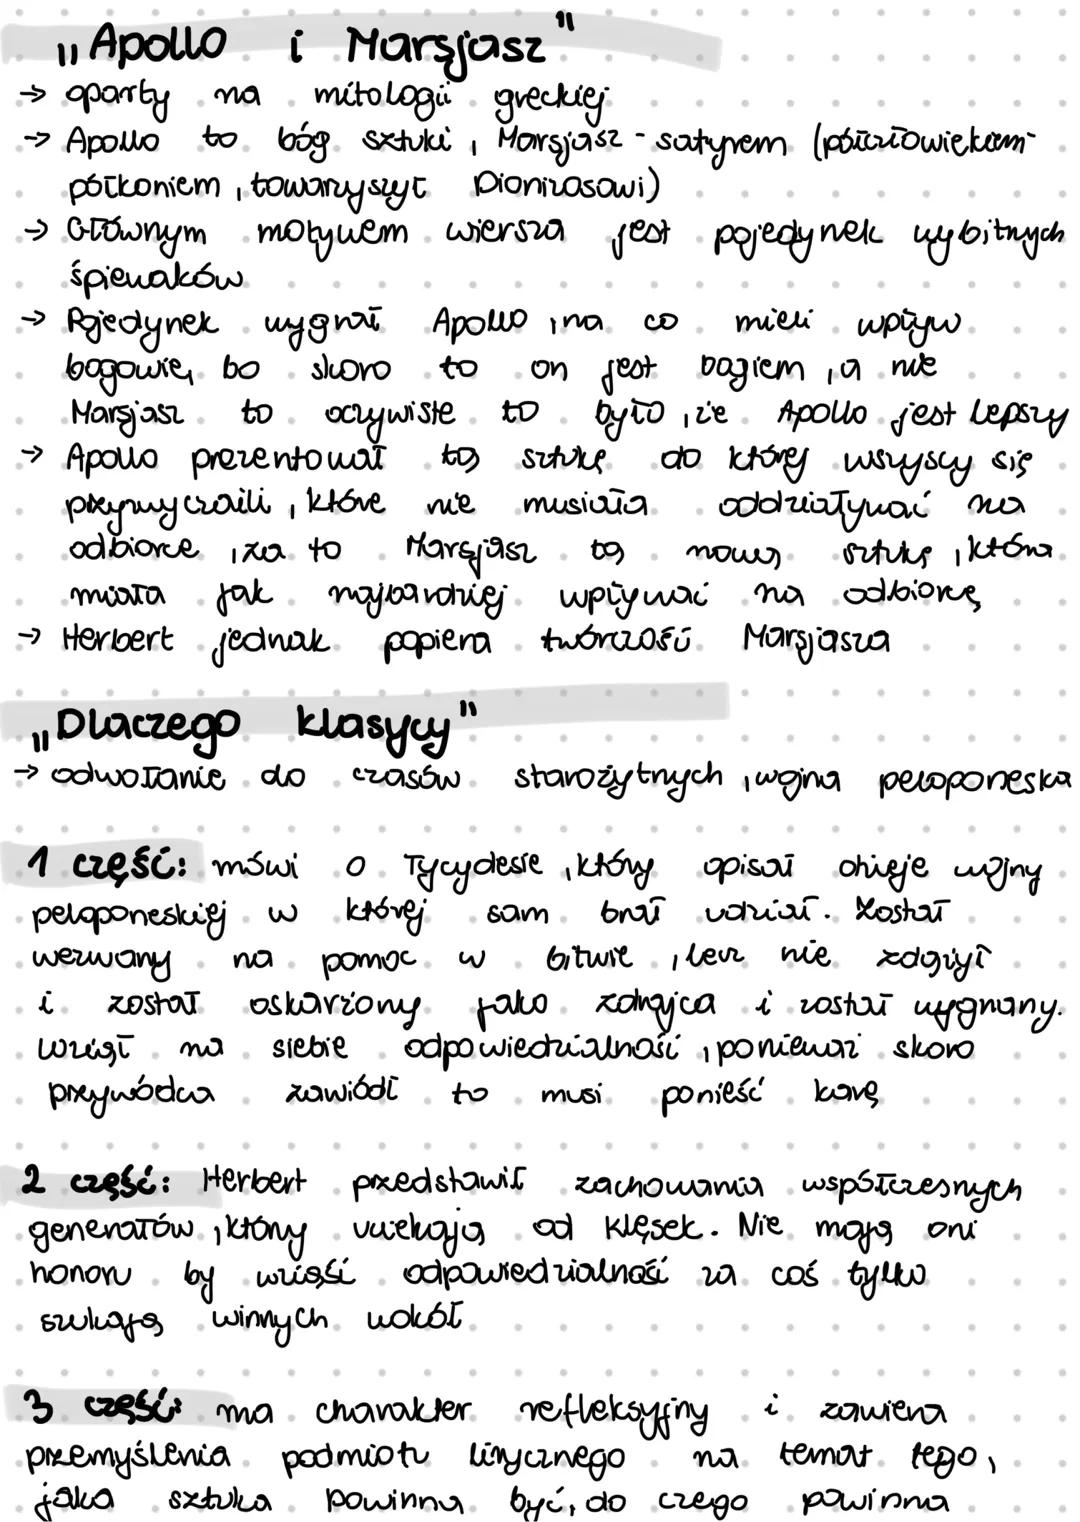 „Apollo i Marsjasz"
→ oparty na mitologii greckiej
→ Apollo to bóg sztuki, Marsjasz - satyrem (półczłowiekiem-
półkoniem, towarzyszył Dionizosowi)
→ Głównym motywem wiersza jest pojedynek wybitnych
śpiewaków
→ Pojedynek wygrał Apollo, na co mieli wpływ
bogowie, bo skoro to on jest bogiem, a nie
Marsjasz to oczywiste to było, że Apollo jest lepszy
→ Apollo prezentował tą sztukę do której wszyscy się
przyzwyczaili, które nie musiała oddziaływać na
odbiorce, za to Marsjasz tą nową sztukę, która
miała jak najbardziej wpływać na odbiorcę
→ Herbert jednak popiera twórczość Marsjasza
„Dlaczego klasycy"
→ odwołanie do czasów starożytnych, wojna peloponeska
1 część: mówi o Tycydesie, który opisał dzieje wojny
peloponeskiej w której sam brał udział. Został
wezwany na pomoc w bitwie, lecz nie zdążył
i został oskarżony jako zdrajca i został wygnany.
Wziął na siebie odpowiedzialność, ponieważ skoro
przywódca zawiódł to musi ponieść karę
2 część: Herbert przedstawił zachowania współczesnych
generałów, którzy uciekają od klęsek. Nie mają oni
honoru by wziąść odpowiedzialność za coś tylko
szukają winnych wokół.
3 część: ma charakter refleksyjny i zawiera
przemyślenia podmiotu lirycznego na temat tego,
jaka sztuka powinna być, do czego powinna